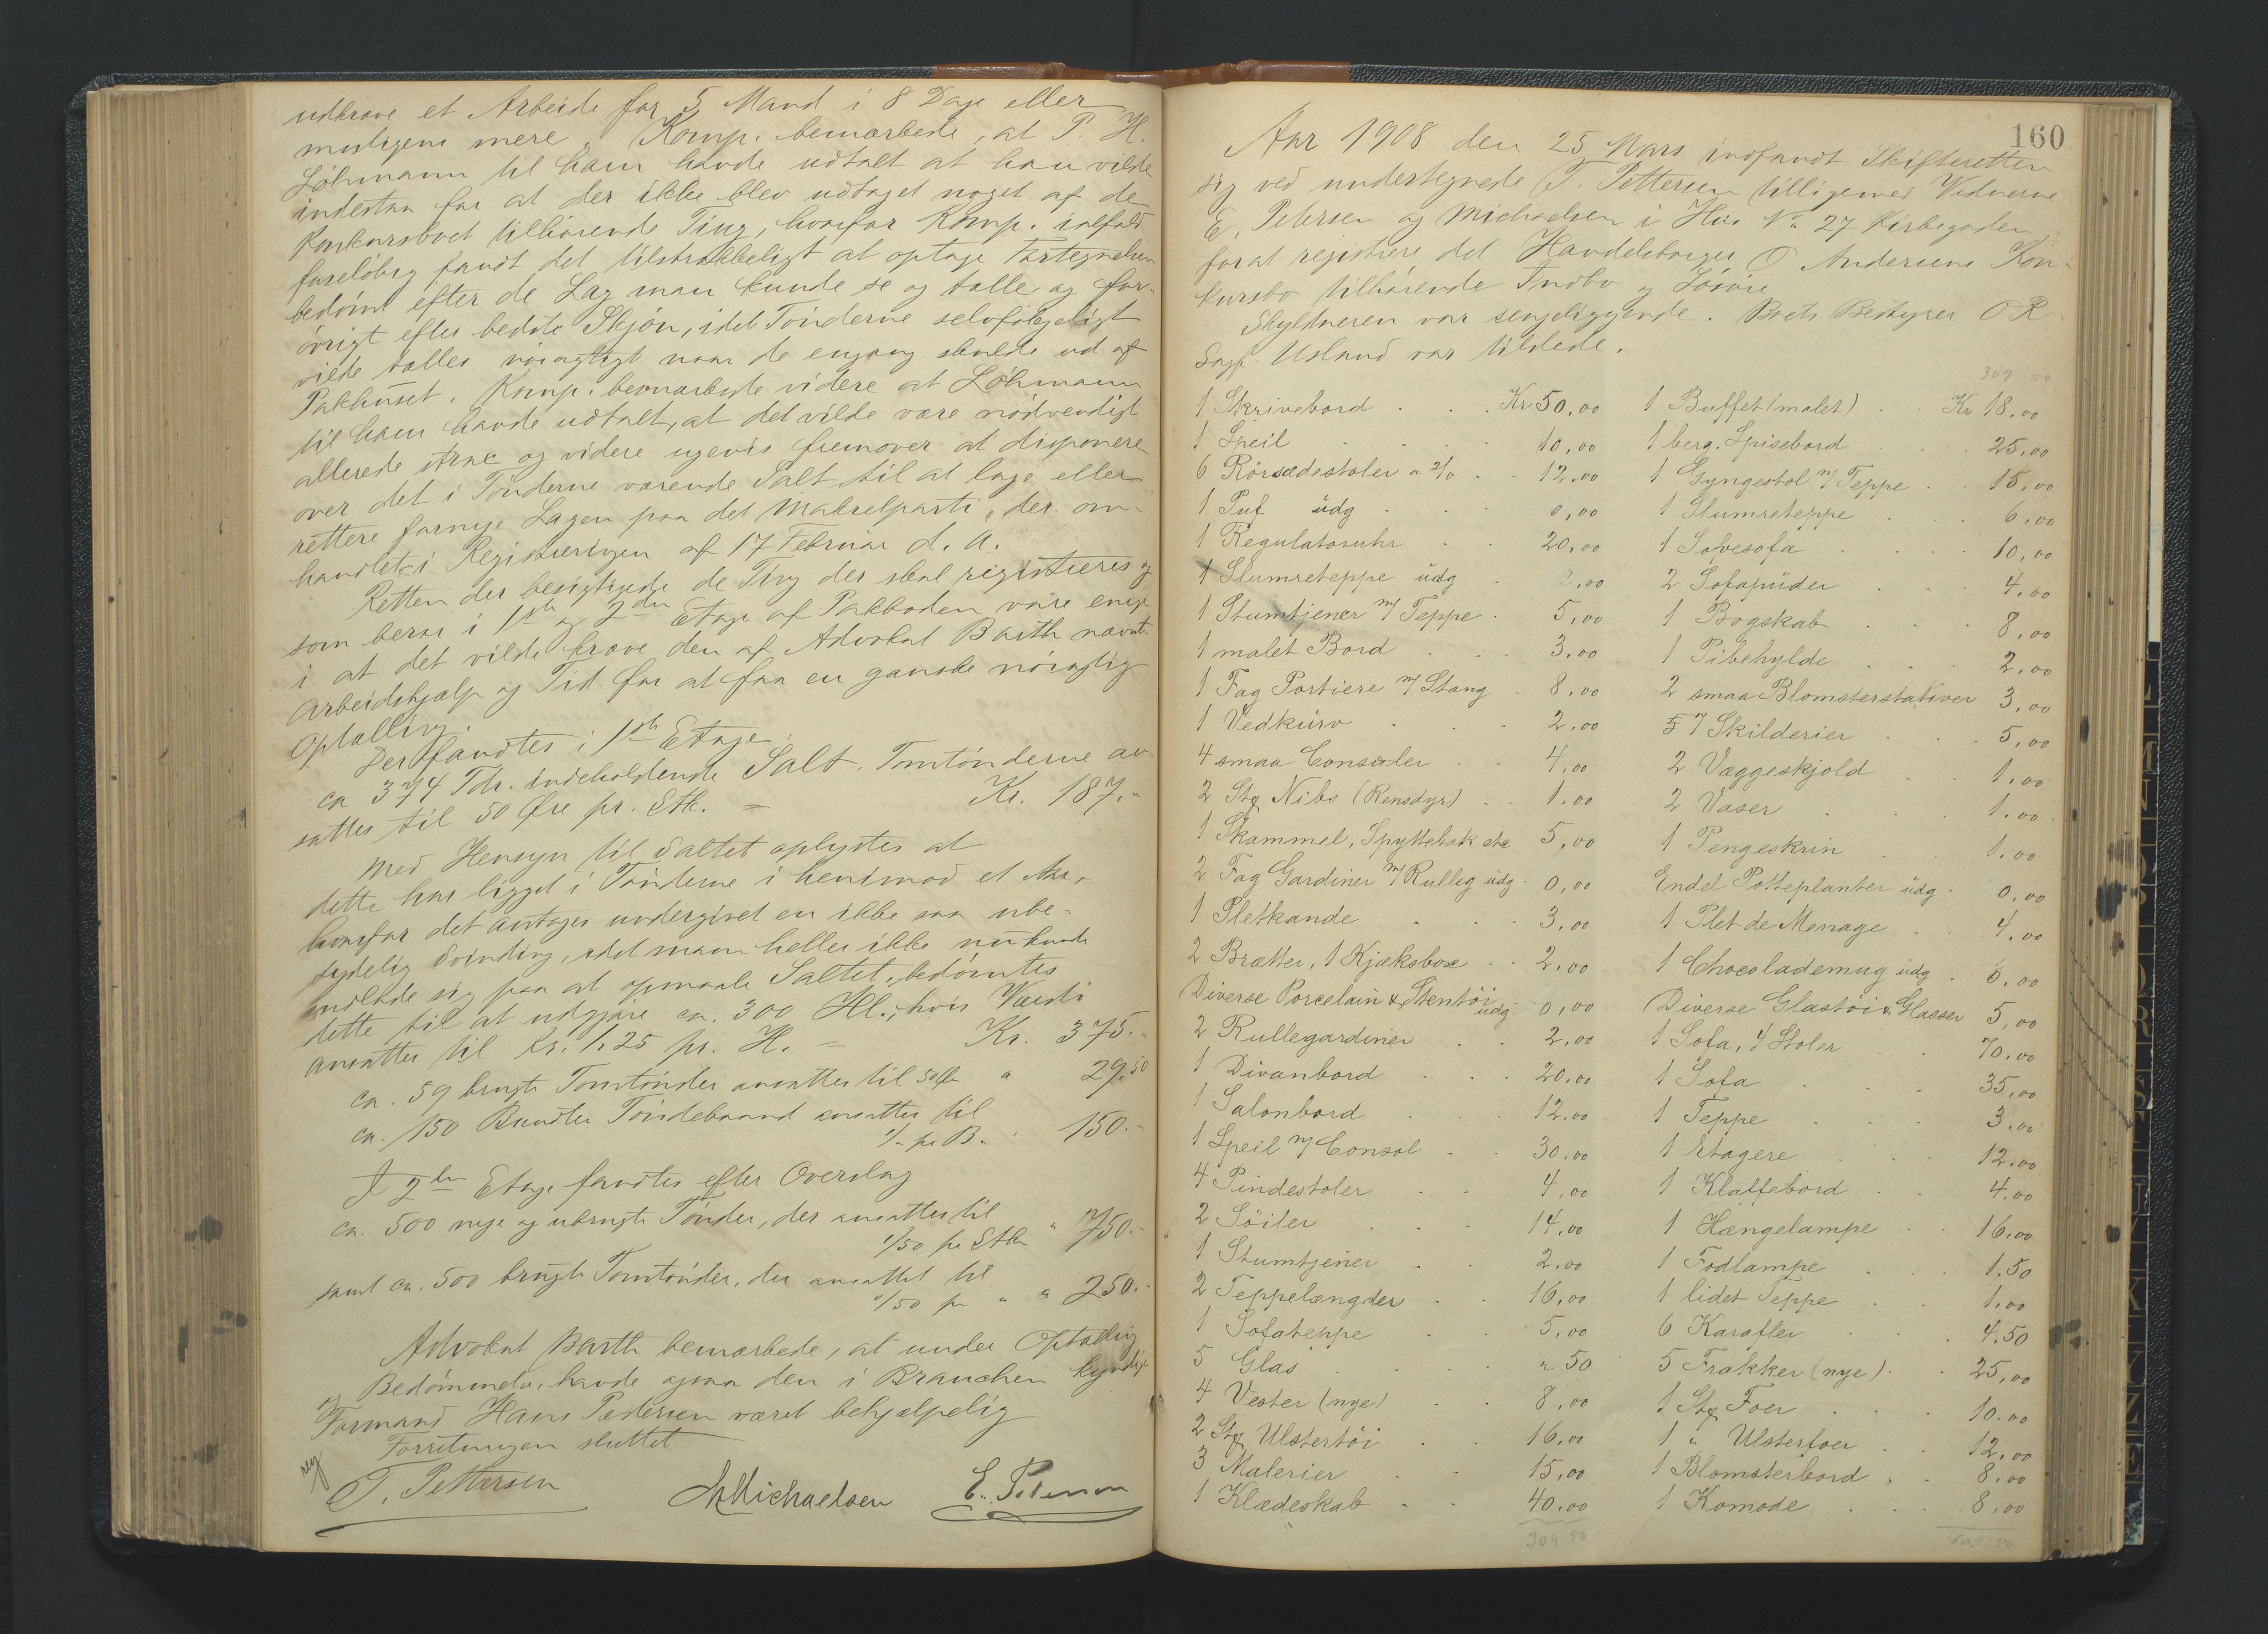 udkræve et Arbeide for 5 Mand i 8 Dage eller
muligens mere. Komp. bemærkede, at P. H.
Löhmann til ham havde udtalt at han vilde
indestaa for at der ikke blev udtaget noget af de
Konkursboet tilhörende Ting, hvorfor Komp. ialfald
foreløbig fandt det tilstrækkeligt at optage Fortegnelsen
bedömt efter de Lag man kunde se og tælle og for-
övrigt efter bedste Skjön, idet Tönderne selvfølgeligt
vilde tælles nöiagtigt naar de engang skulde ud af
Pakhuset. Komp. bemærkede videre at Löhmann
til ham havde udtalt, at det vilde være nödvendigt
allerede strax og videre ugevis fremover at disponere
over det i Tönderne værende Salt til at lage eller
rettere fornye Lagen paa det Makrelparti, der om-
handlet i Registreringen af 17 Februar d. A.
Retten der besigtigede de Ting der skal registreres og
som beror i 1ste og 2den Etage af Pakboden være enige
i at det vilde kræve den af Advokat Barth nævnte
Arbeidshjælp og Tid for at faa en ganske nöiagtig
Optælling.
Der fandtes i 1ste Etage:
ca 374 Tdr. indeholdende Salt. Tomtönderne an-
sattes til 50 Øre pr. Stk. = Kr. 187.-
Med Hensyn til Saltet oplystes at
dette har ligget i Tönderne i henimod et Aar,
hvorfor det antages undergivet en ikke saa ube-
tydelig Svinding, idet man heller ikke nu kunde
indlade sig paa at opmaale Saltet, bedömtes
dette til at udgjöre ca. 300 Hl., hvis Værdi
ansattes til Kr. 1.25 pr. H. = Kr. 375.-
ca. 59 brugte Tomtönder ansattes til 50 Øre " 29.50
ca. 150 Bundter Töndebaand ansattes til
1/- pr B. " 150.-
I 2den Etage fandtes efter Overslag
ca. 500 nye og ubrugte Tönder, der ansattes til
1/50 pr Stk " 750.-
samt ca. 500 brugte Tomtönder, der ansattes til
0/50 pr " " 250.-
Advokat Barth bemærkede, at under Optælling
og Bedömmelse havde ogsaa den i Branchen kyndige
Formand Hans Pedersen været behjælpelig
Forretningen sluttet
reg
T. Pettersen Michaelsen E. Petersen
160
Aar 1908 den 25 Mars indfandt Skifteretten
sig ved undertegnede T. Pettersen tilligemed Vidnerne
E. Petersen og Michaelsen i Hus No 27 Kirkegaden
for at registrere det Handelsborger O Andersens Kon-
kursbo tilhörende Indbo og Lösöre
Skyldneren var sengeliggende. Boets Bestyrer O R
Sagf. Usland var tilstede.
309 50
1 Skrivebord . . . Kr 50,00
1 Speil . . . . 10,00
6 Rörsædestoler a 2/0 . . 12,00
1 Puf üdg . . . 0,00
1 Regulatoruhr . . 20,00
1 Slumreteppe üdg . 0,00
1 Stumtjener m/ Teppe . 5,00
1 malet Bord . . . 3,00
1 Fag Portiere m/ Stang . 8,00
1 Vedkürv . . . 2,00
4 smaa Consoler . . 4,00
2 Stk Nibs (Rensdyr) . . 1,00
1 Skammel, Spyttebak etc 5,00
2 Fag Gardiner m/ Rulleg üdg . 0,00
1 Pletkande . . . 3,00
2 Brætter, 1 Kjæksboxe . . 2,00
Diverse Porcelain & Stentöi üdg 0,00
2 Rullegardiner . . 2,00
1 Divanbord . . . 20,00
1 Salonbord . . . 12,00
1 Speil m/ Consol . . 30,00
4 Pindestoler . . 4,00
2 Söiler . . . 14,00
1 Stumtjener . . 2,00
2 Teppelængder . . 16,00
1 Sofateppe . . 5,00
5 Glas . . . " 50
4 Vester (nye) . . 8,00
2 Stk Ulstertöi . . 16,00
3 Malerier . . 15,00
1 Klædeskab . . 40,00
309 50
1 Buffet (malet) . . Kr 18,00
1 berg. Spisebord . . . 25,00
1 Gyngestol m/ Teppe . . 15,00
1 Slumreteppe . . . 6,00
1 Sovesofa . . . . 10,00
2 Sofapüder . . . 4,00
1 Bogskab . . . 8,00
1 Pibehylde . . . 2,00
2 smaa Blomsterstativer 3,00
5 7 Skilderier . . . 5,00
2 Væggeskjold . . 1,00
2 Vaser . . . 1,00
1 Pengeskrin . 1,00
Endel Potteplanter üdg . 0,00
1 Plet de Menage . . 4,00
1 Chocolademug üdg . 0,00
Diverse Glastöi & Glasser 5,00
1 Sofa, 4 Stoler . . 70,00
1 Sofa . . . 35,00
1 Teppe . . . 3,00
1 Etagere . . . 12,00
1 Klaffebord . . 4,00
1 Hængelampe . . 16,00
1 Fodlampe . . . 1,50
1 lidet Teppe . . 1,00
6 Karafler . . . 4,50
5 Frakker (nye) . . 25,00
1 Stk Foer . . . 10,00
1 " Ulsterfoer . . 12,00
1 Blomsterbord . . 8,00
1 Komode . . . 8,00